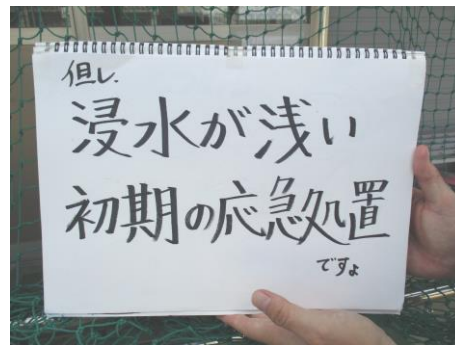 但し、
浸水が浅い
初期の応急処置
ですよ